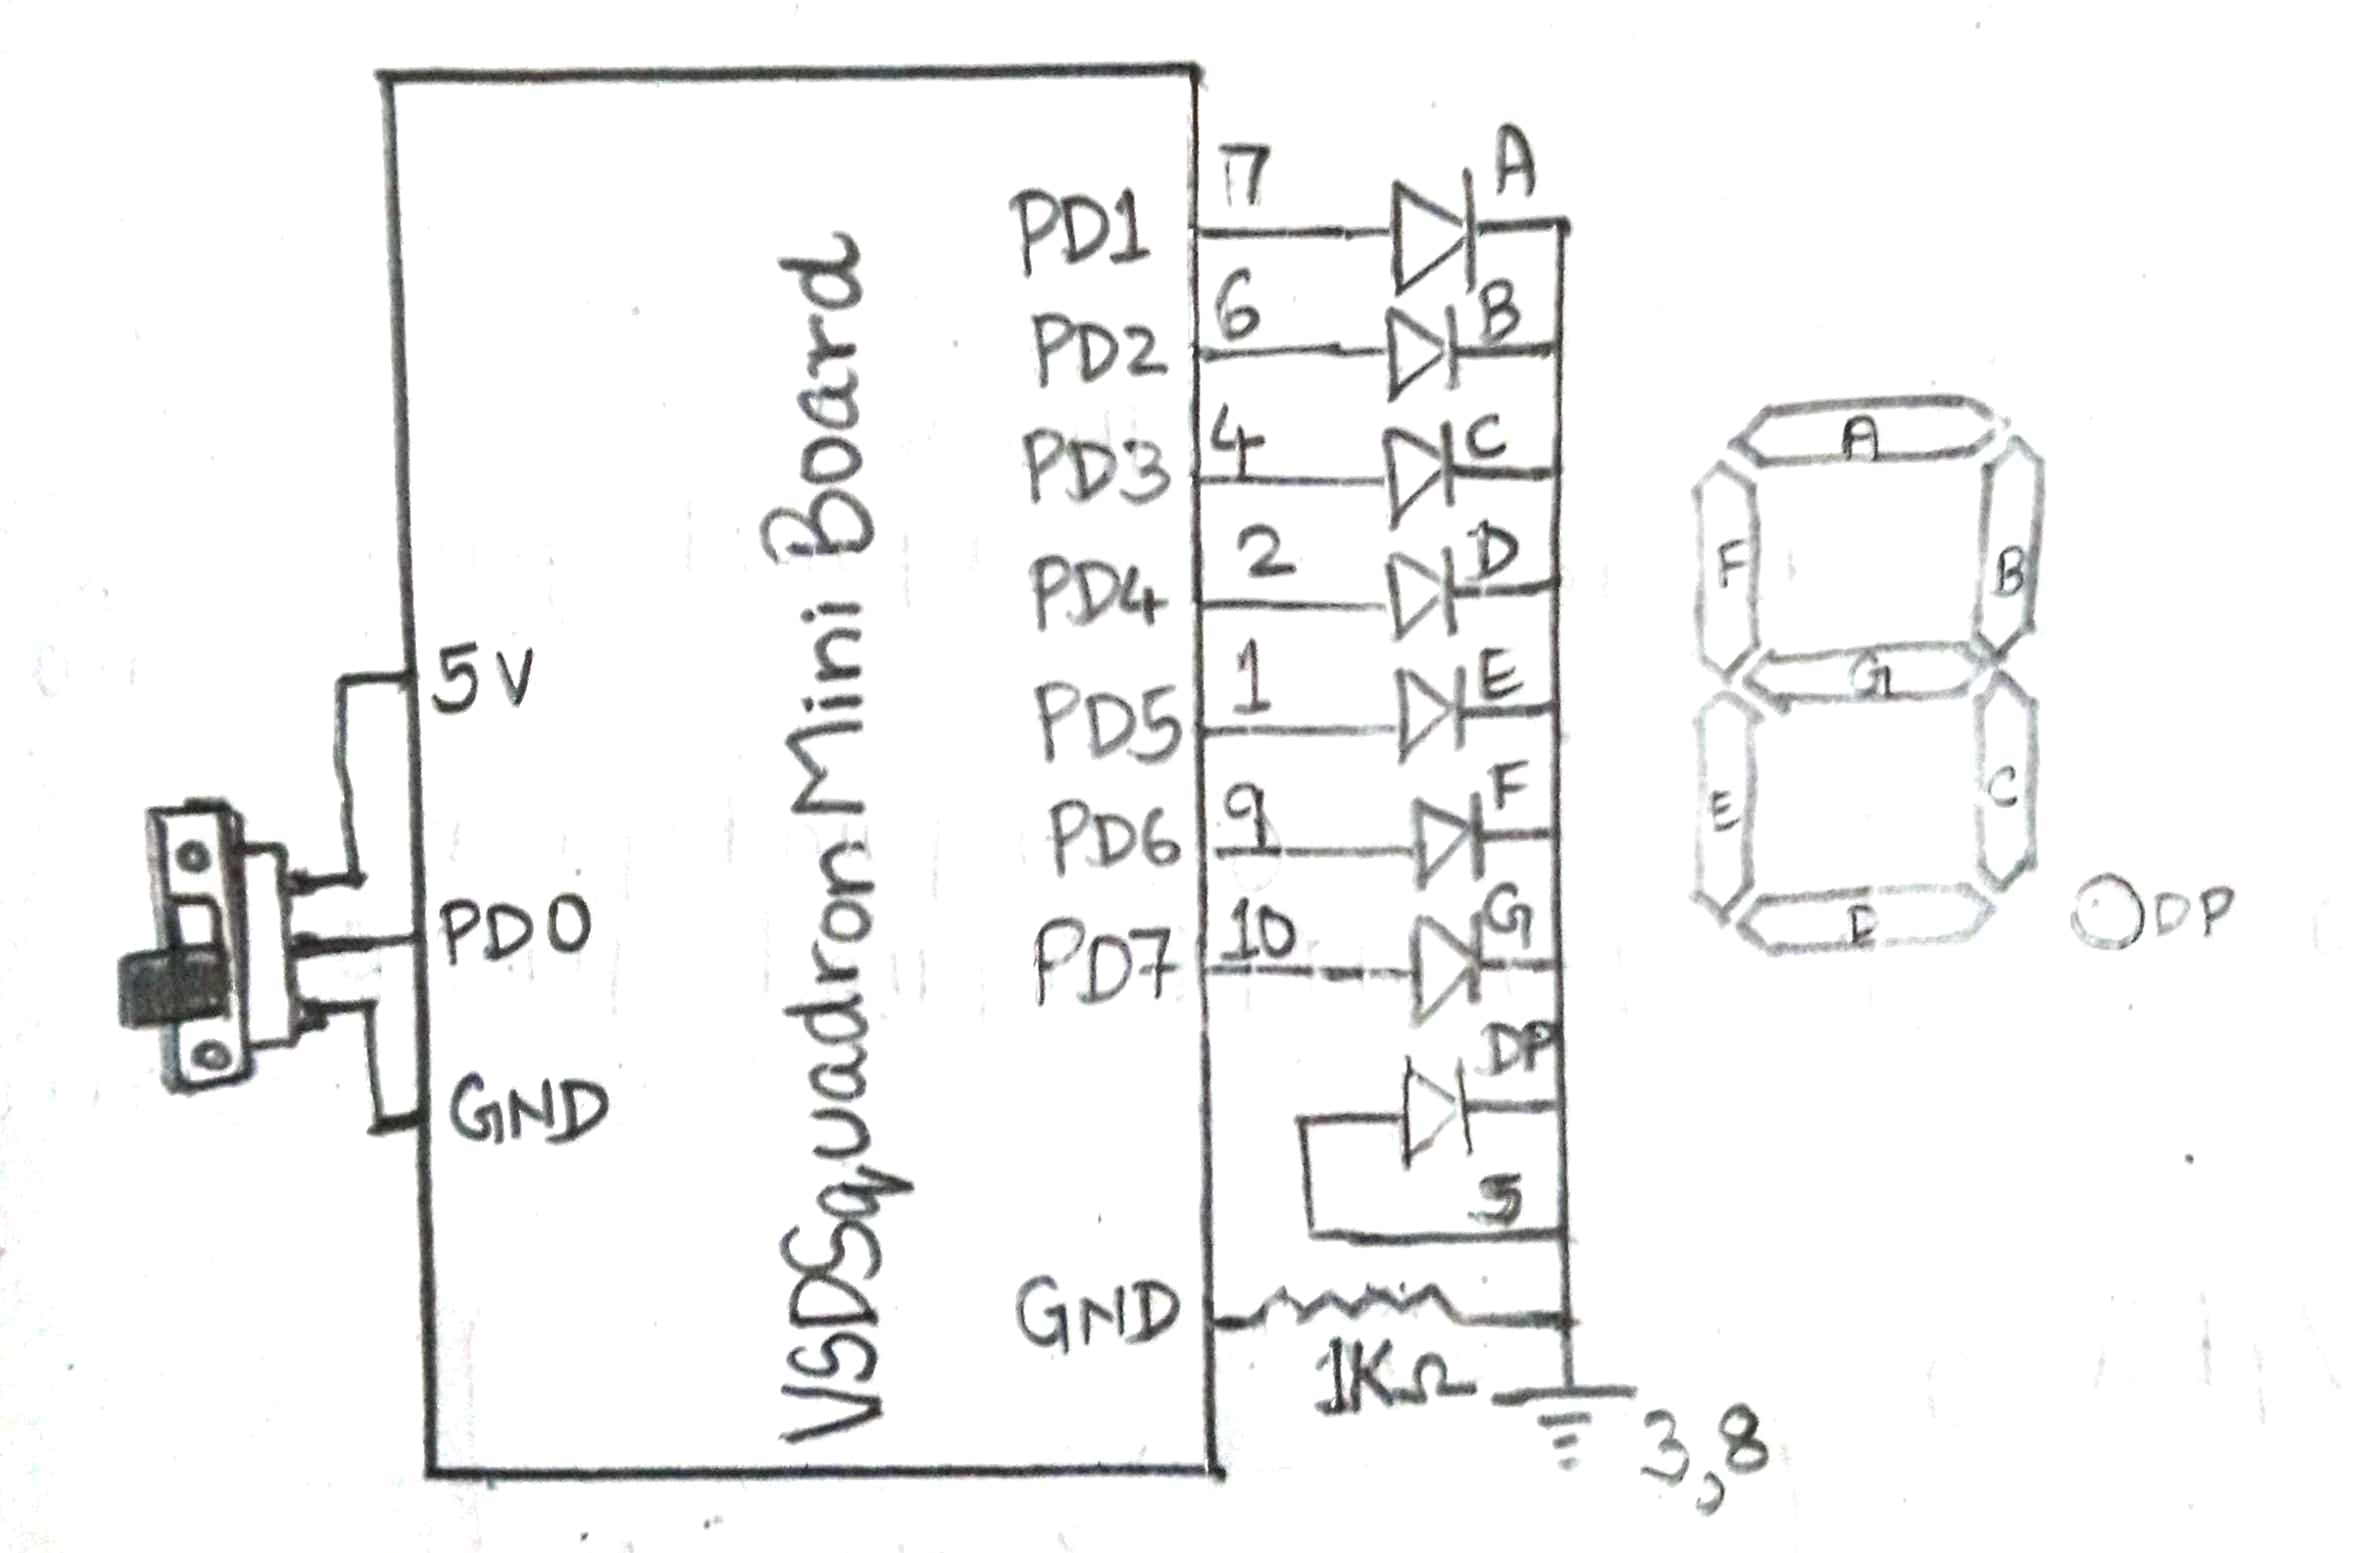 VSDSquadron Mini Board
5V
PD0
GND
PD1
7
A
PD2
6
B
PD3
4
C
PD4
2
D
PD5
1
E
PD6
9
F
PD7
10
G
DP
5
GND
1KΩ
3,8
A
F
B
G
E
C
D
DP